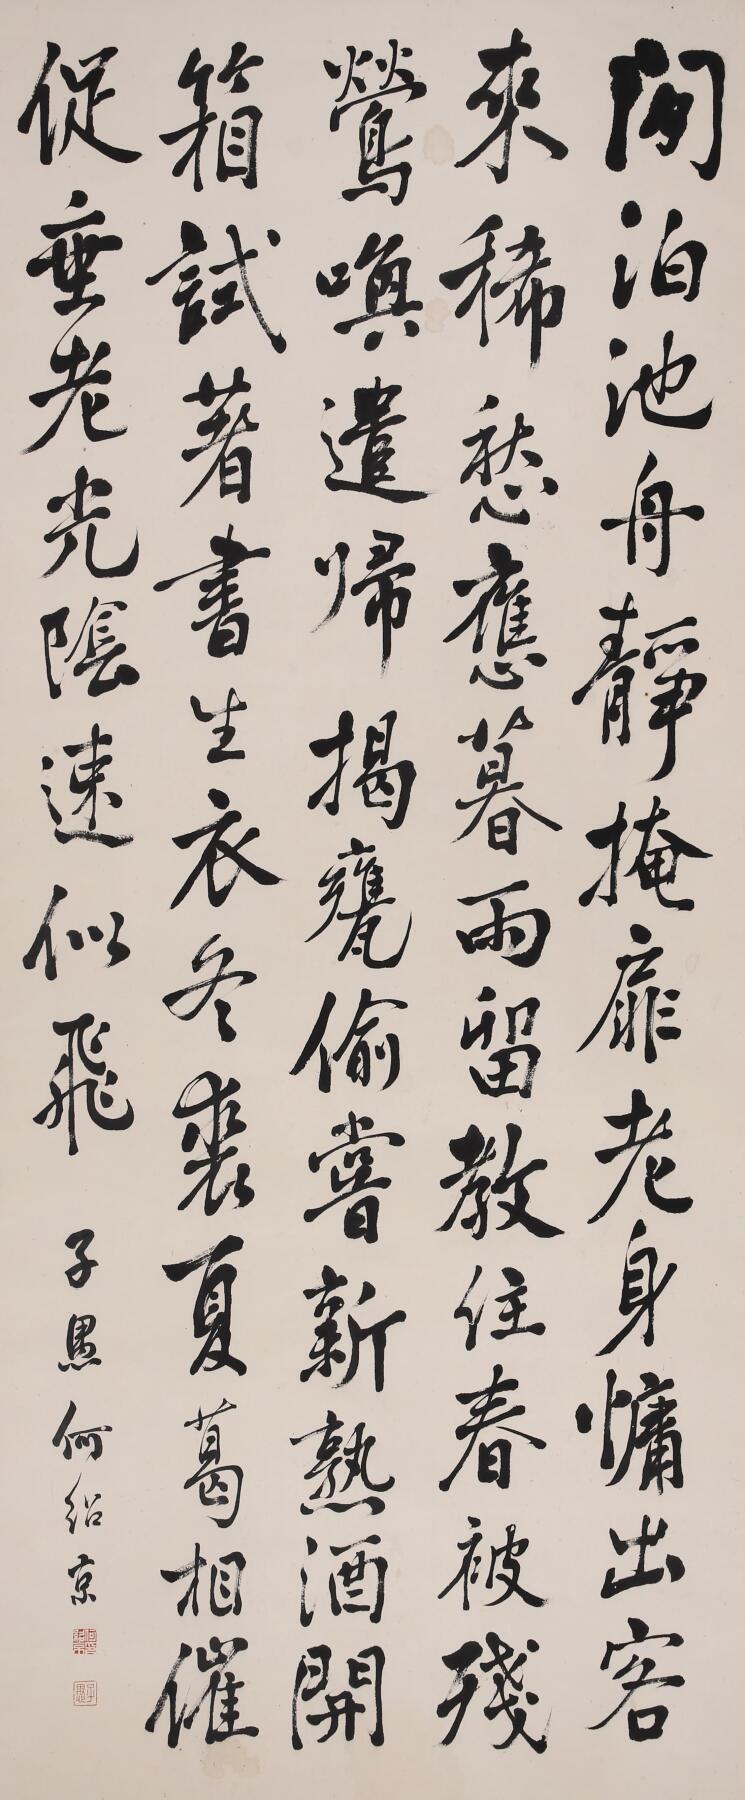 閒泊池舟靜掩扉老身慵出客
來稀愁應暮雨留教住春被殘
鶯喚遣歸揭甕偷嘗新熟酒開
箱試著舊生衣冬裘夏葛相催
促垂老光陰速似飛
子愚何紹京